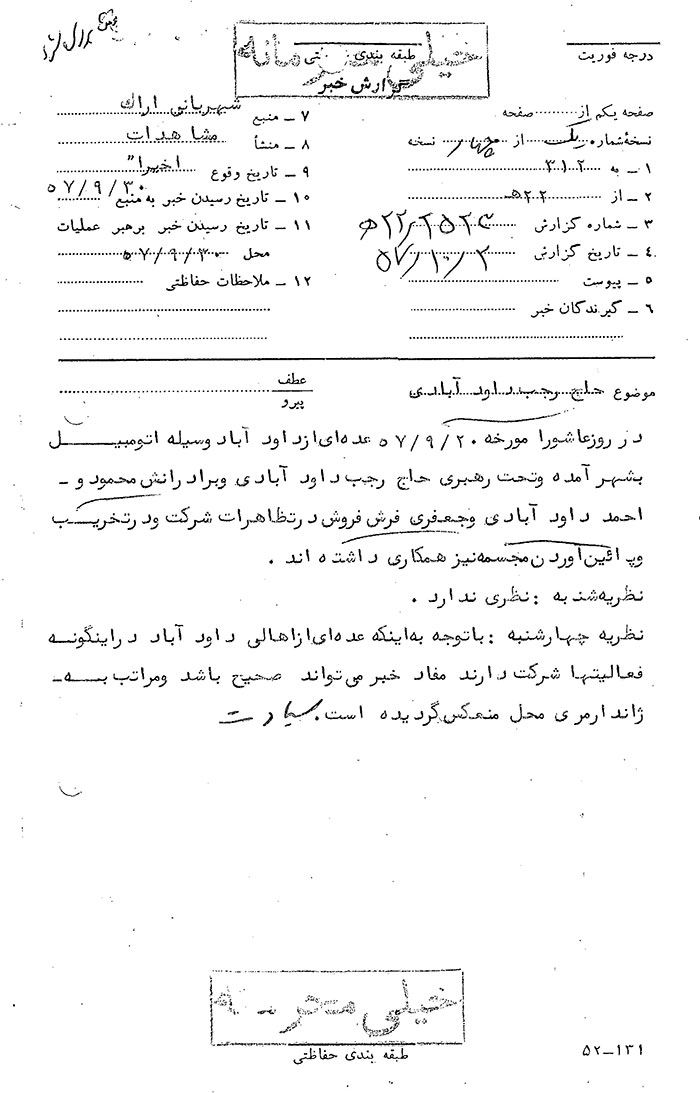 خیلی محرمانه
درجه فوریت
طبقه بندی
گزارش خبر
صفحه یکم از صفحه
نسخهٔ شماره یک از چهار نسخه
۱ ـ به ۳۱۲
۲ ـ از ۲۲ هـ
۳ ـ شماره گزارش
۴ ـ تاریخ گزارش ۵۷/۱۰/۲
۵ ـ پیوست
۶ ـ گیرندگان خبر
۷ ـ منبع شهربانی اراک
۸ ـ منشأ مشاهدات
۹ ـ تاریخ وقوع اخیرا"
۱۰ ـ تاریخ رسیدن خبر به منبع ۵۷/۹/۳۰
۱۱ ـ تاریخ رسیدن خبر برهبر عملیات
محل ۵۷/۹/۳۰
۱۲ ـ ملاحظات حفاظتی
موضوع حاج رجب داود آبادی
عطف
پیرو
در روز عاشورا مورخه ۵۷/۹/۲۰ عده‌ای از داود آباد وسیله اتومبیل
بشهر آمده وتحت رهبری حاج رجب داود آبادی وبرادرانش محمود و ـ
احمد داود آبادی وجعفری فرش فروش درتظاهرات شرکت ودرتخریب
وپائین‌آوردن مجسمه نیز همکاری داشته اند .
نظریه شنبه : نظری ندارد .
نظریه چهارشنبه : باتوجه به‌اینکه عده‌ای ازاهالی داود آباد دراینگونه
فعالیتها شرکت دارند مفاد خبر می‌تواند صحیح باشد ومراتب به ـ
ژاندارمری محل منعکس گردیده است.
خیلی محرمانه
طبقه بندی حفاظتی
۵۲ـ۱۳۱